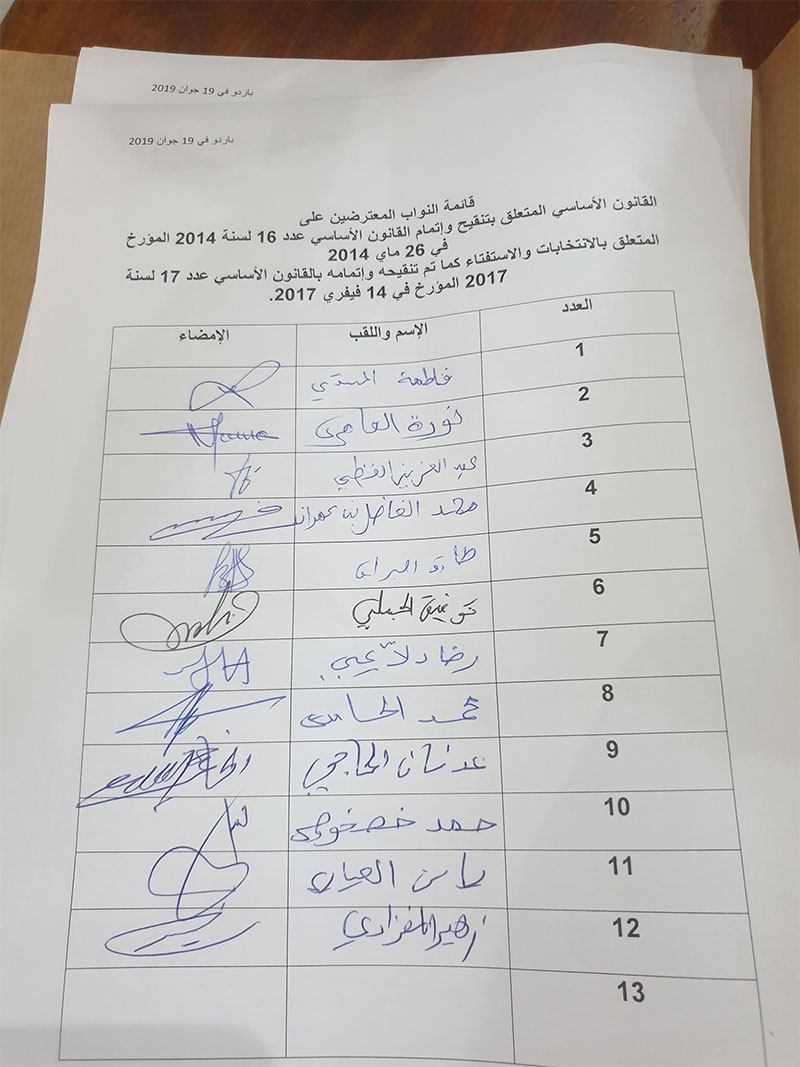 باردو في 19 جوان 2019
باردو في 19 جوان 2019
قائمة النواب المعترضين على
القانون الأساسي المتعلق بتنقيح وإتمام القانون الأساسي عدد 16 لسنة 2014 المؤرخ
في 26 ماي 2014
المتعلق بالانتخابات والاستفتاء كما تم تنقيحه وإتمامه بالقانون الأساسي عدد 17 لسنة
2017 المؤرخ في 14 فيفري 2017.
العدد الإسم واللقب الإمضاء
1 فاطمة المسدي
2 نورة العامري
3 عبد العزيز القطي
4 محمد الفاضل بن عمران
5 طارق البراق
6 توفيق الجملي
7 رضا دلاّعي
8 محمد الحامدي
9 عدنان الحاجي
10 حمد الخصخوصي
11 ياسين العياري
12 زهير المغزاوي
13